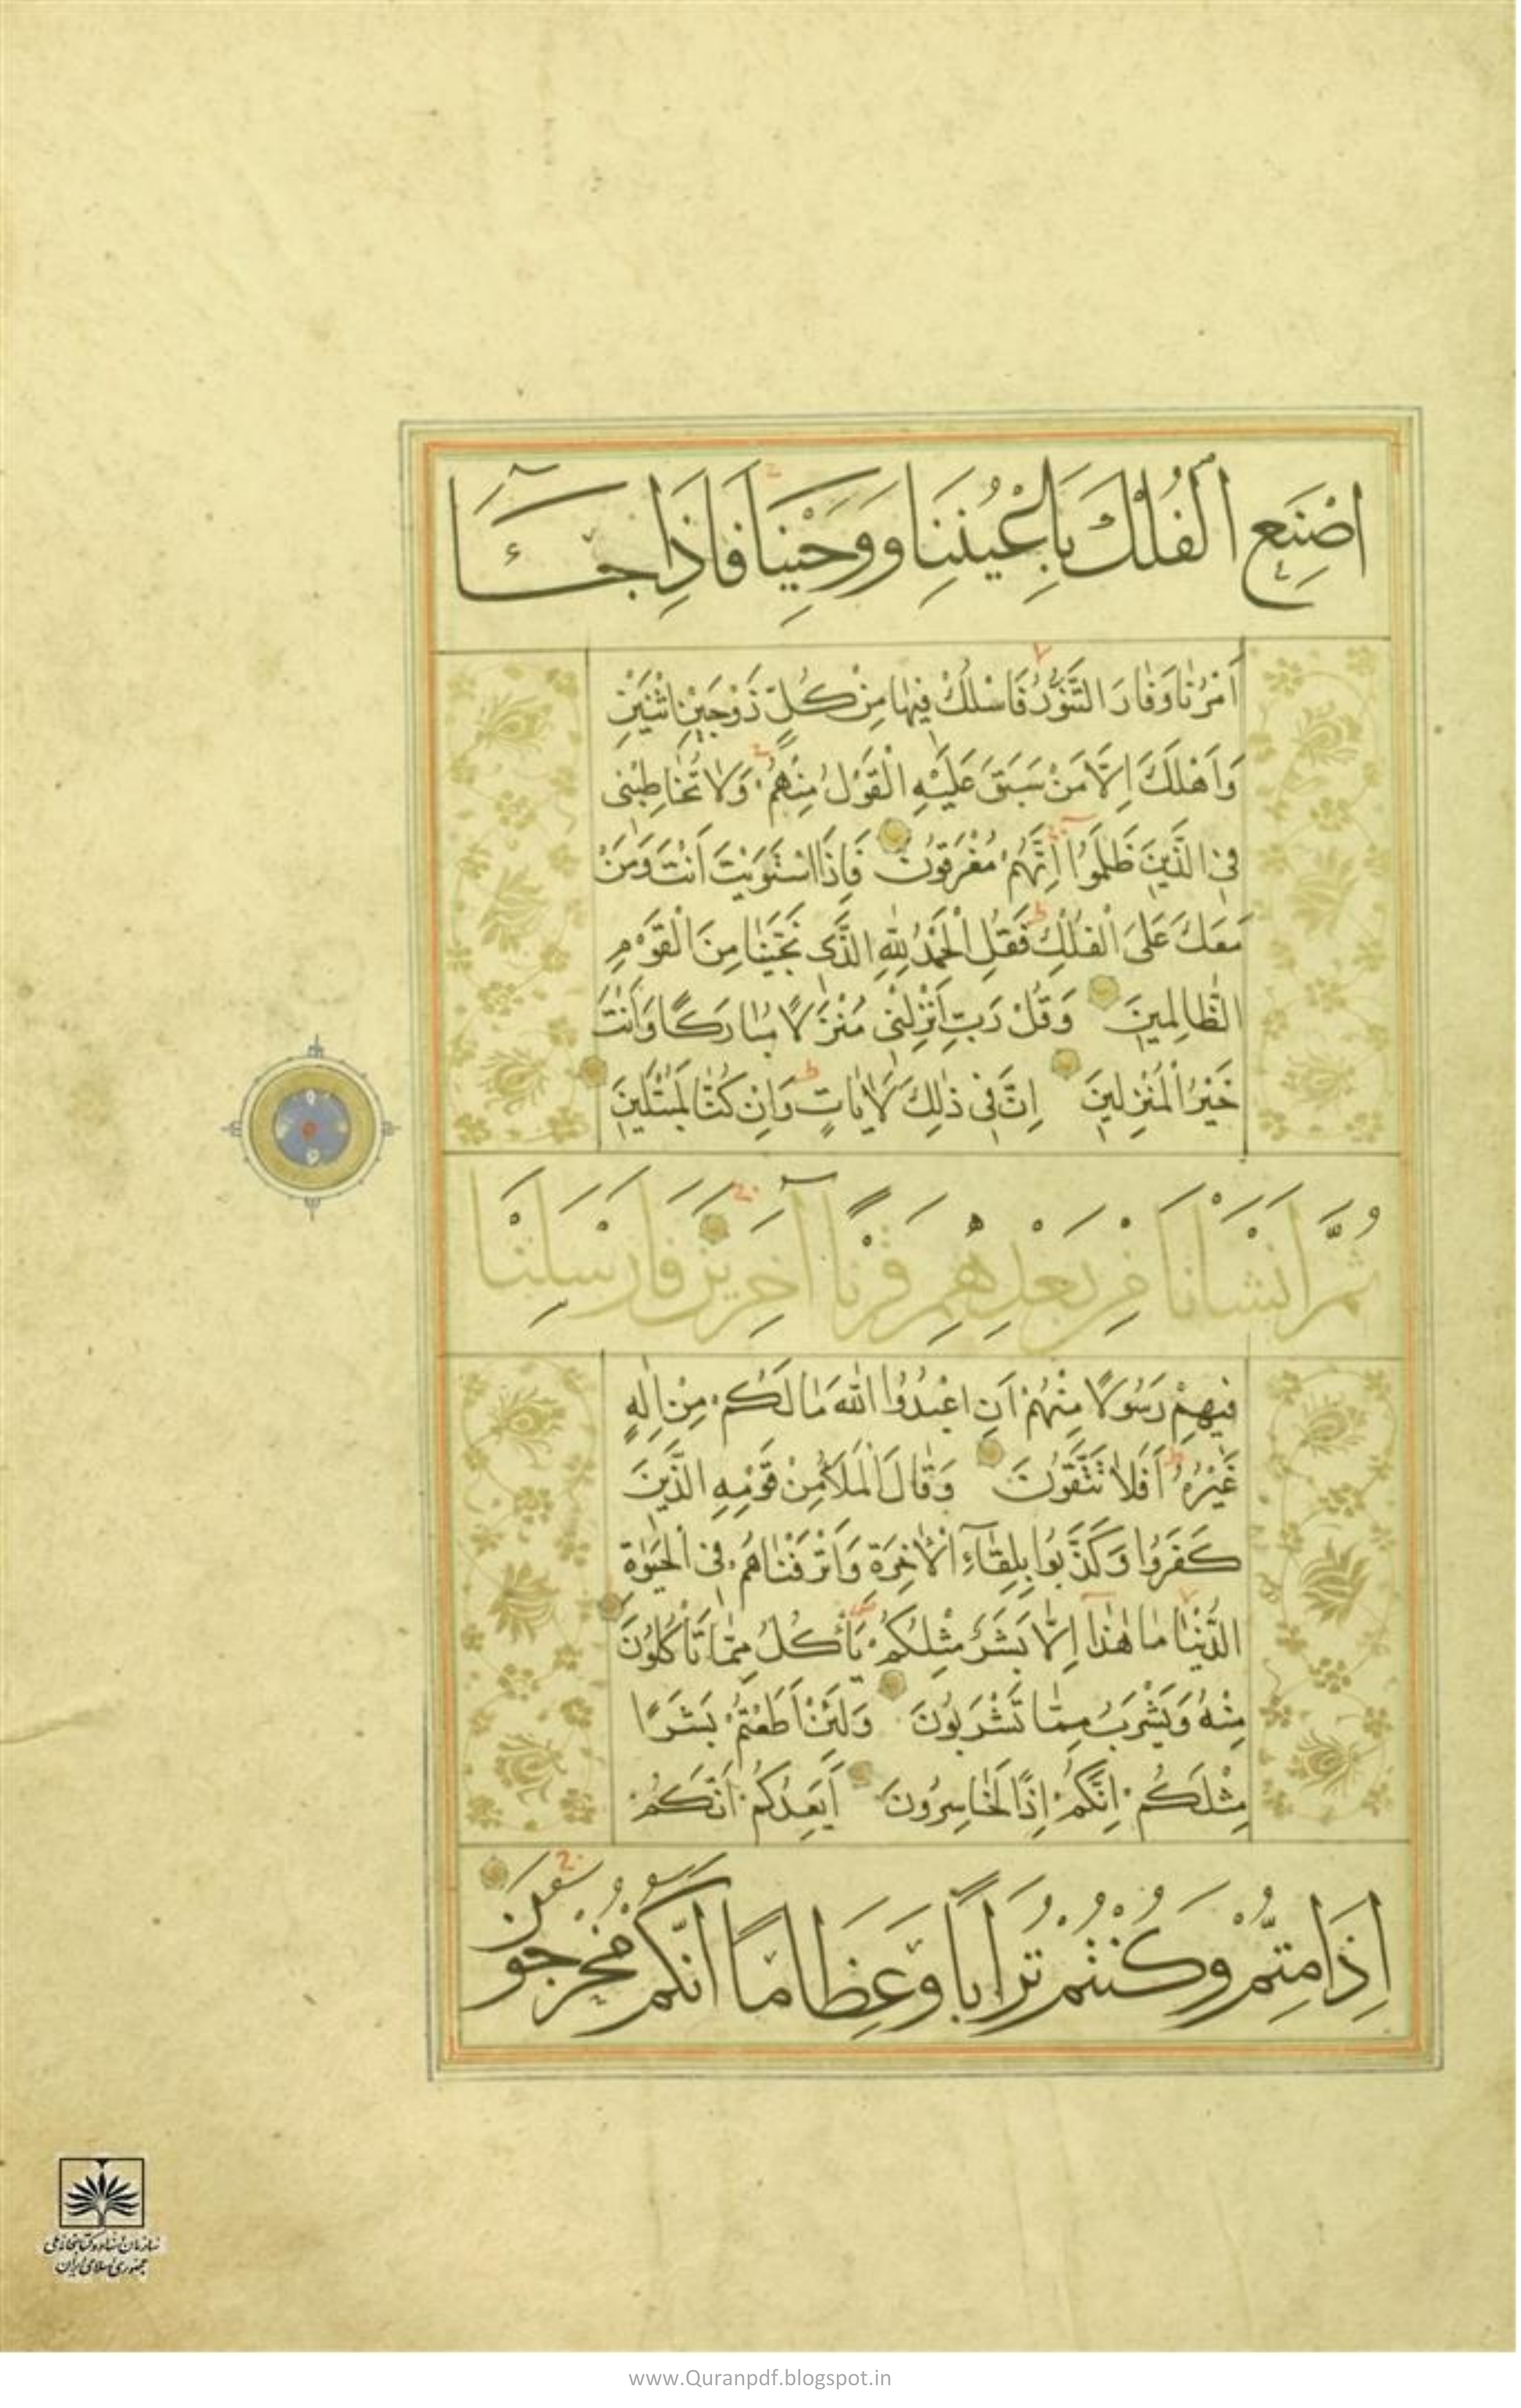 اصْنَعِ الْفُلْكَ بِاَعْيُنِنَا وَوَحْيِنَا فَاِذَا جَآءَ
اَمْرُنَا وَفَارَ التَّنُّوْرُ فَاسْلُكْ فِيهَا مِنْ كُلٍّ زَوْجَيْنِ اثْنَيْنِ
وَاَهْلَكَ اِلَّا مَنْ سَبَقَ عَلَيْهِ الْقَوْلُ مِنْهُمْ وَلَا تُخَاطِبْنِى
فِى الَّذِينَ ظَلَمُوا اِنَّهُمْ مُغْرَقُونَ فَاِذَا اسْتَوَيْتَ اَنْتَ وَمَنْ
مَعَكَ عَلَى الْفُلْكِ فَقُلِ الْحَمْدُ لِلّٰهِ الَّذِى نَجّٰينَا مِنَ الْقَوْمِ
الظَّالِمِينَ وَقُلْ رَبِّ اَنْزِلْنِى مُنْزَلًا مُبَارَكًا وَاَنْتَ
خَيْرُ الْمُنْزِلِينَ اِنَّ فِى ذٰلِكَ لَاٰيَاتٍ وَاِنْ كُنَّا لَمُبْتَلِينَ
ثُمَّ اَنْشَأْنَا مِنْ بَعْدِهِمْ قَرْنًا آخَرِينَ فَاَرْسَلْنَا
فِيهِمْ رَسُولًا مِنْهُمْ اَنِ اعْبُدُوا اللّٰهَ مَا لَكُمْ مِنْ اِلٰهٍ
غَيْرُهُ اَفَلَا تَتَّقُونَ وَقَالَ الْمَلَأُ مِنْ قَوْمِهِ الَّذِينَ
كَفَرُوا وَكَذَّبُوا بِلِقَآءِ الْاٰخِرَةِ وَاَتْرَفْنَاهُمْ فِى الْحَيٰوةِ
الدُّنْيَا مَا هٰذَا اِلَّا بَشَرٌ مِثْلُكُمْ يَأْكُلُ مِمَّا تَأْكُلُونَ
مِنْهُ وَيَشْرَبُ مِمَّا تَشْرَبُونَ وَلَئِنْ اَطَعْتُمْ بَشَرًا
مِثْلَكُمْ اِنَّكُمْ اِذًا لَخَاسِرُونَ اَيَعِدُكُمْ اَنَّكُمْ
اِذَا مِتُّمْ وَكُنْتُمْ تُرَابًا وَعِظَامًا اَنَّكُمْ مُخْرَجُونَ
سازمان اسناد و کتابخانه ملی
جمهوری اسلامی ایران
www.Quranpdf.blogspot.in